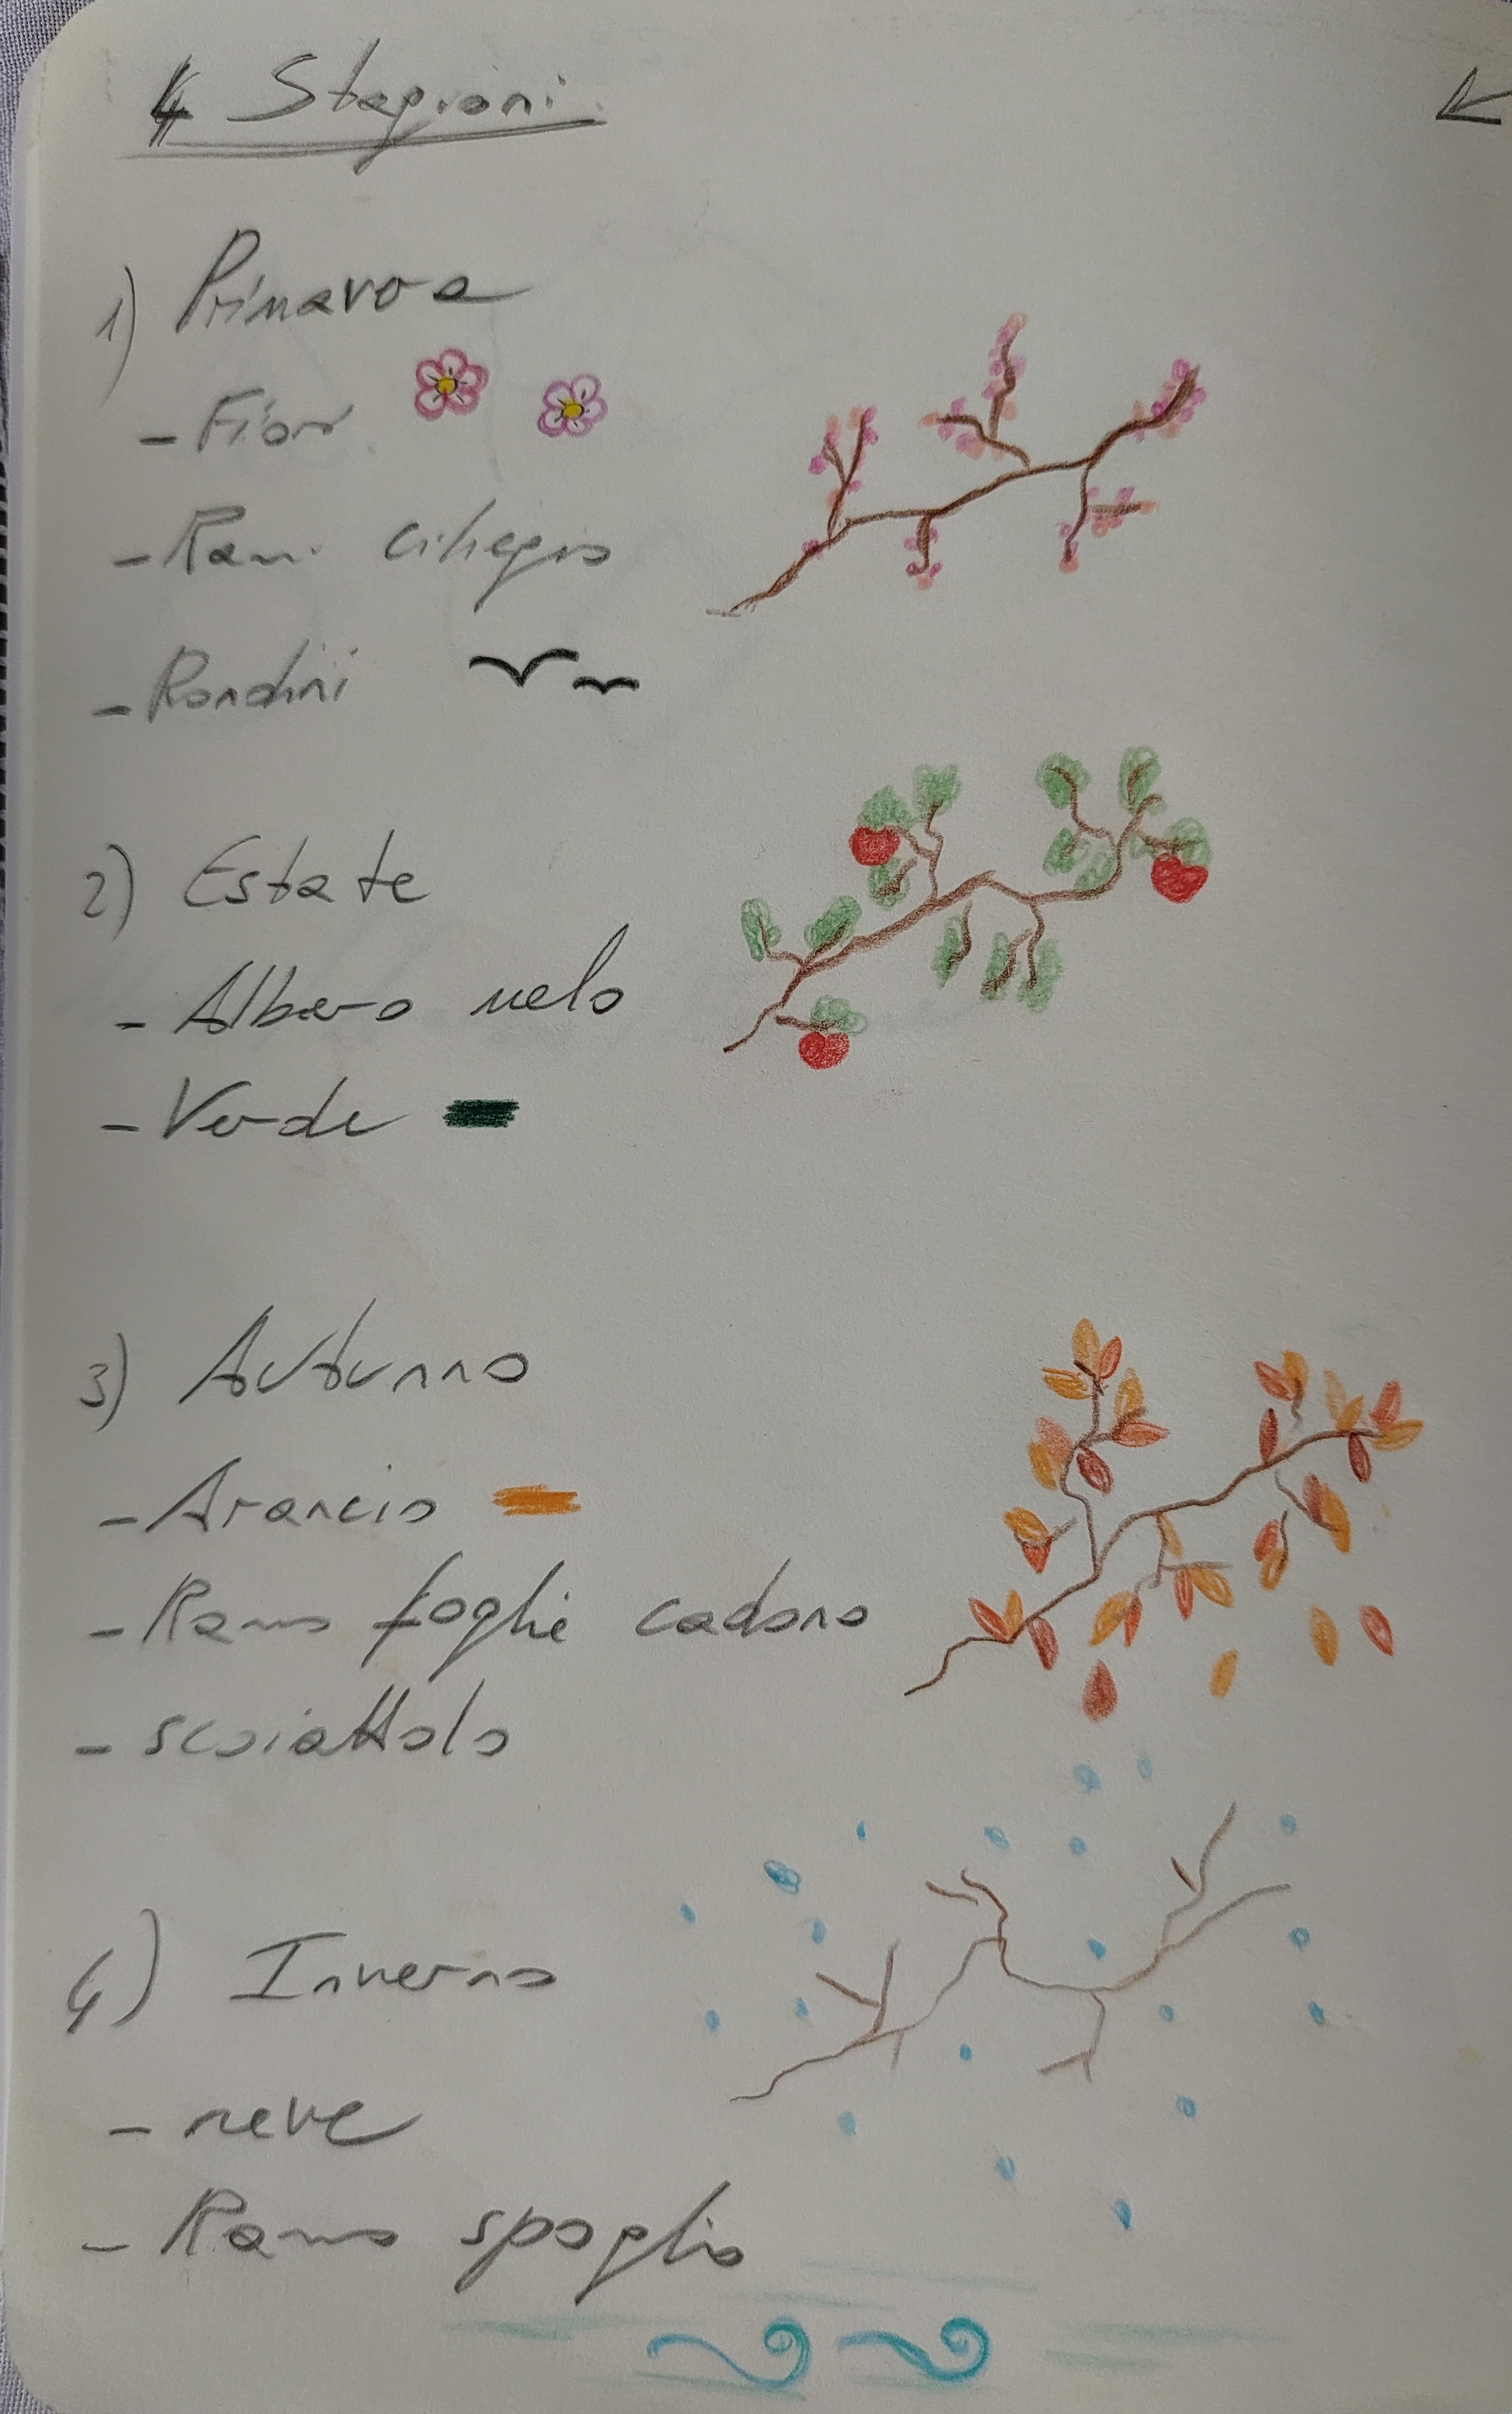 4 Stagioni
1) Primavera
- Fiori
- Rami ciliegio
- Rondini
2) Estate
- Albero melo
- Verde
3) Autunno
- Arancio
- Ramo foglie cadono
- scoiattolo
4) Inverno
- neve
- Ramo spoglio